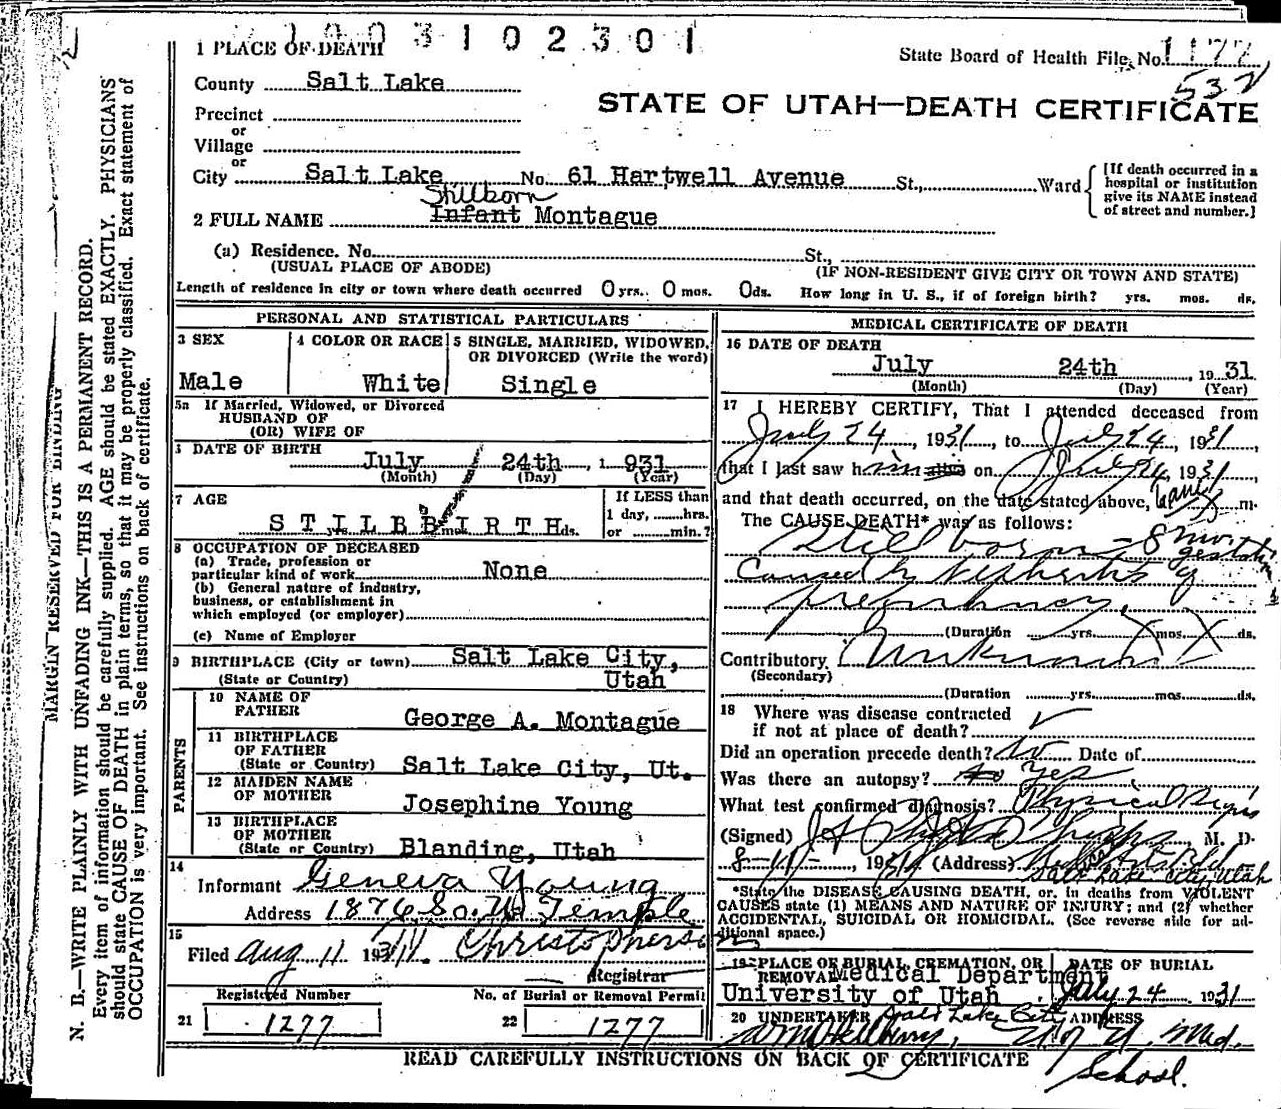 1003102301
1 PLACE OF DEATH
State Board of Health File No. 1177
532
County Salt Lake
STATE OF UTAH—DEATH CERTIFICATE
Precinct
or
Village
or
City Salt Lake No. 61 Hartwell Avenue St., Ward
[If death occurred in a hospital or institution give its NAME instead of street and number.]
Stillborn
2 FULL NAME Infant Montague
(a) Residence. No. St.,
(USUAL PLACE OF ABODE) (IF NON-RESIDENT GIVE CITY OR TOWN AND STATE)
Length of residence in city or town where death occurred 0 yrs. 0 mos. 0 ds. How long in U. S., if of foreign birth? yrs. mos. ds.
PERSONAL AND STATISTICAL PARTICULARS
3 SEX
Male
4 COLOR OR RACE
White
5 SINGLE, MARRIED, WIDOWED,
OR DIVORCED (Write the word)
Single
5a If Married, Widowed, or Divorced
HUSBAND OF
(OR) WIFE OF
DATE OF BIRTH
July 24th, 1931
(Month) (Day) (Year)
7 AGE
STILBBIRTH
yrs. mos. ds.
If LESS than
1 day, hrs.
or min.?
8 OCCUPATION OF DECEASED
(a) Trade, profession or
particular kind of work None
(b) General nature of industry,
business, or establishment in
which employed (or employer)
(c) Name of Employer
9 BIRTHPLACE (City or town) Salt Lake City,
(State or Country) Utah
PARENTS
10 NAME OF
FATHER George A. Montague
11 BIRTHPLACE
OF FATHER
(State or Country) Salt Lake City, Ut.
12 MAIDEN NAME
OF MOTHER Josephine Young
13 BIRTHPLACE
OF MOTHER
(State or Country) Blanding, Utah
14
Informant Geneva Young
Address 1876 So. W. Temple
15
Filed Aug 11 1931 Christopherson
Registrar
Registered Number No. of Burial or Removal Permit
21 1277 22 1277
MEDICAL CERTIFICATE OF DEATH
16 DATE OF DEATH
July 24th, 1931
(Month) (Day) (Year)
17 I HEREBY CERTIFY, That I attended deceased from
July 24, 1931, to July 24, 1931,
that I last saw him alive on July 24, 1931,
and that death occurred, on the date stated above, m.
The CAUSE DEATH* was as follows:
Still born - 8 mo. gestation
Caused by Nephritis of
pregnancy.
(Duration yrs. mos. ds.
Contributory Unknown
(Secondary)
(Duration yrs. mos. ds.
18 Where was disease contracted
if not at place of death?
Did an operation precede death? No Date of
Was there an autopsy? No Yes
What test confirmed diagnosis? Physical Signs
(Signed) M. D.
8-11-, 1931 (Address)
Salt Lake City, Utah
*State the DISEASE CAUSING DEATH, or, in deaths from VIOLENT
CAUSES state (1) MEANS AND NATURE OF INJURY; and (2) whether
ACCIDENTAL, SUICIDAL OR HOMICIDAL. (See reverse side for additional space.)
19 PLACE OF BURIAL, CREMATION, OR
REMOVAL Medical Department
University of Utah
DATE OF BURIAL
July 24 1931
20 UNDERTAKER Salt Lake City ADDRESS
U of U. Med.
School.
READ CAREFULLY INSTRUCTIONS ON BACK OF CERTIFICATE
MARGIN RESERVED FOR BINDING
N. B.—WRITE PLAINLY WITH UNFADING INK—THIS IS A PERMANENT RECORD.
Every item of information should be carefully supplied. AGE should be stated EXACTLY. PHYSICIANS
should state CAUSE OF DEATH in plain terms, so that it may be properly classified. Exact statement of
OCCUPATION is very important. See instructions on back of certificate.